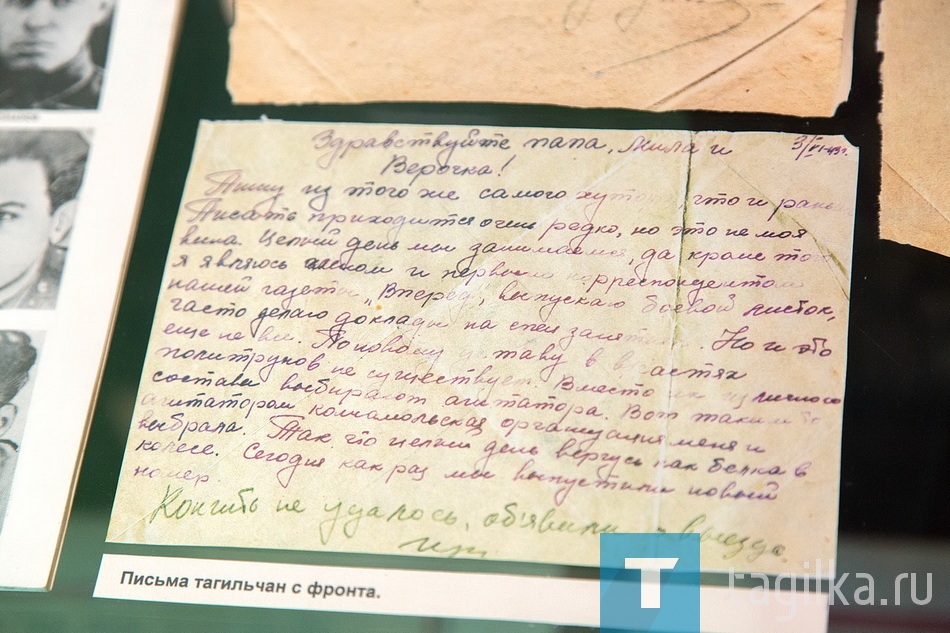 Здравствуйте папа, Мила и 3/VI-43г.
Верочка!
Пишу из того же самого что и
Писать приходится очень редко, но это не моя
вина. Целый день мы занимаемся, да кроме то
я являюсь членом и первым корреспондентом
нашей газеты „Вперед", выпускаю боевой листок,
часто делаю доклады на спец Но и это
еще не все. По новому уставу в частях
политруков не существует. Вместо их из личного
состава выбирают агитатора. Вот таким
агитатором комсомольская организация меня и
выбрала. Так, что целый день верчусь как белка в
колесе. Сегодня как раз мы выпустили новый
номер.
Кончить не удалось, объявили о выезде.
Письма тагильчан с фронта.
T tagilka.ru